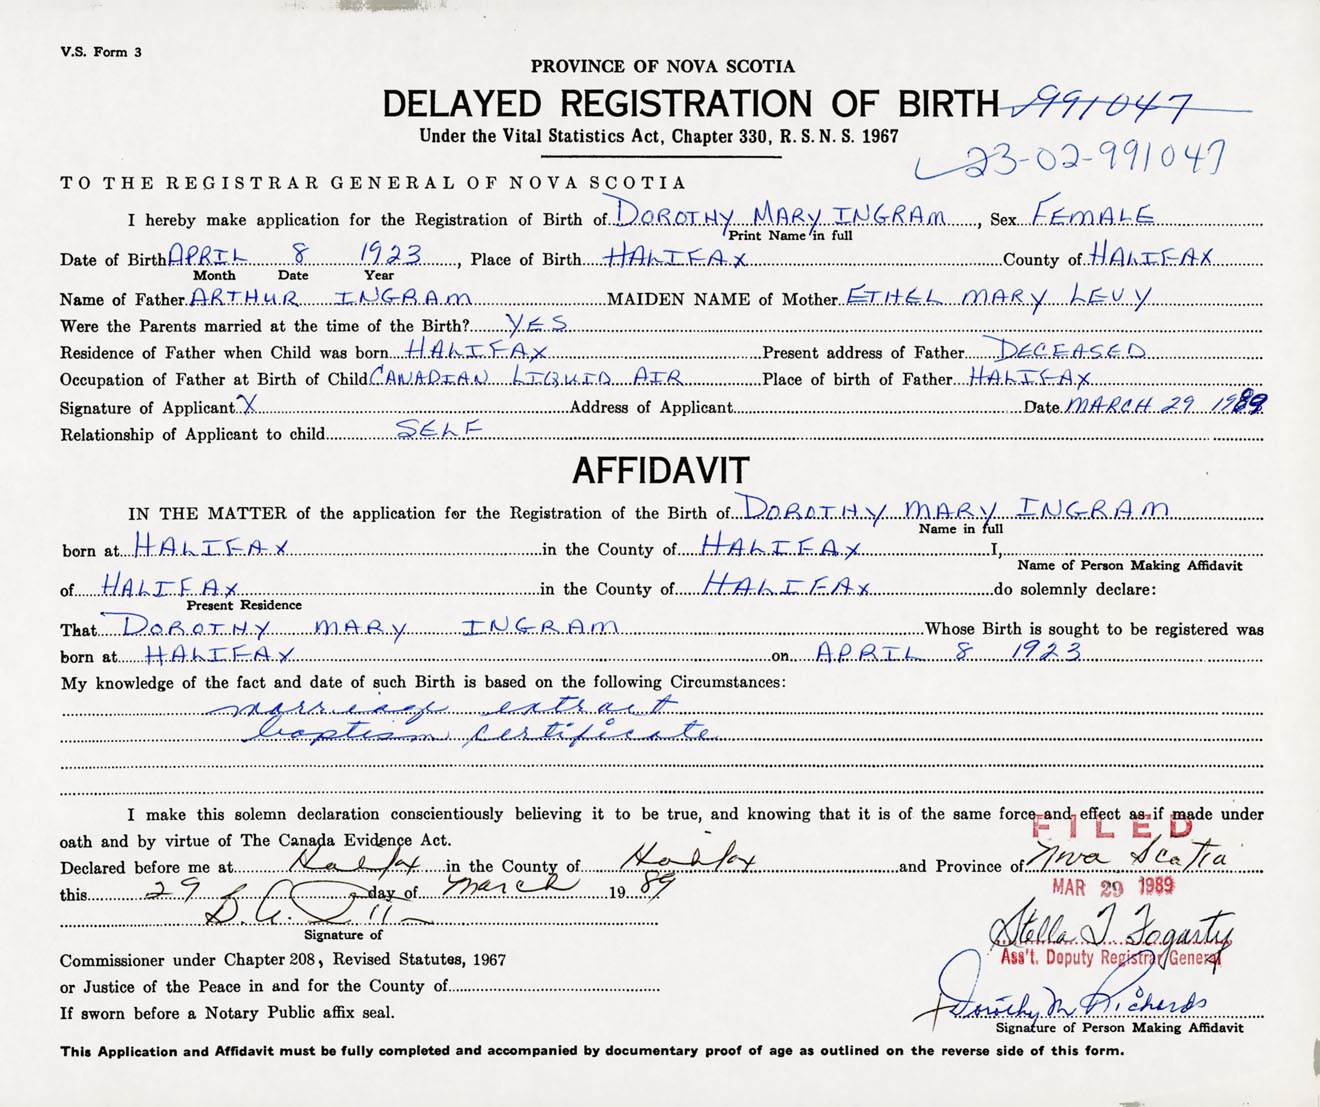 V.S. Form 3
PROVINCE OF NOVA SCOTIA
DELAYED REGISTRATION OF BIRTH 991047
Under the Vital Statistics Act, Chapter 330, R. S. N. S. 1967
23-02-991047
TO THE REGISTRAR GENERAL OF NOVA SCOTIA
I hereby make application for the Registration of Birth of DOROTHY MARY INGRAM, Sex FEMALE
Print Name in full
Date of Birth APRIL 8 1923, Place of Birth HALIFAX County of HALIFAX
Month Date Year
Name of Father ARTHUR INGRAM MAIDEN NAME of Mother ETHEL MARY LEVY
Were the Parents married at the time of the Birth? YES
Residence of Father when Child was born HALIFAX Present address of Father DECEASED
Occupation of Father at Birth of Child CANADIAN LIQUID AIR Place of birth of Father HALIFAX
Signature of Applicant X Address of Applicant Date MARCH 29 1989
Relationship of Applicant to child SELF
AFFIDAVIT
IN THE MATTER of the application for the Registration of the Birth of DOROTHY MARY INGRAM
Name in full
born at HALIFAX in the County of HALIFAX I,
Name of Person Making Affidavit
of HALIFAX in the County of HALIFAX do solemnly declare:
Present Residence
That DOROTHY MARY INGRAM Whose Birth is sought to be registered was
born at HALIFAX on APRIL 8 1923
My knowledge of the fact and date of such Birth is based on the following Circumstances:
marriage extract
baptism certificate
I make this solemn declaration conscientiously believing it to be true, and knowing that it is of the same force and effect as if made under
oath and by virtue of The Canada Evidence Act.
FILED
Declared before me at Halifax in the County of Halifax and Province of Nova Scotia
this 29 day of March 1989
MAR 29 1989
Signature of
Stella T Fogarty
Ass't. Deputy Registrar General
Commissioner under Chapter 208, Revised Statutes, 1967
or Justice of the Peace in and for the County of
Dorothy M Richards
If sworn before a Notary Public affix seal.
Signature of Person Making Affidavit
This Application and Affidavit must be fully completed and accompanied by documentary proof of age as outlined on the reverse side of this form.